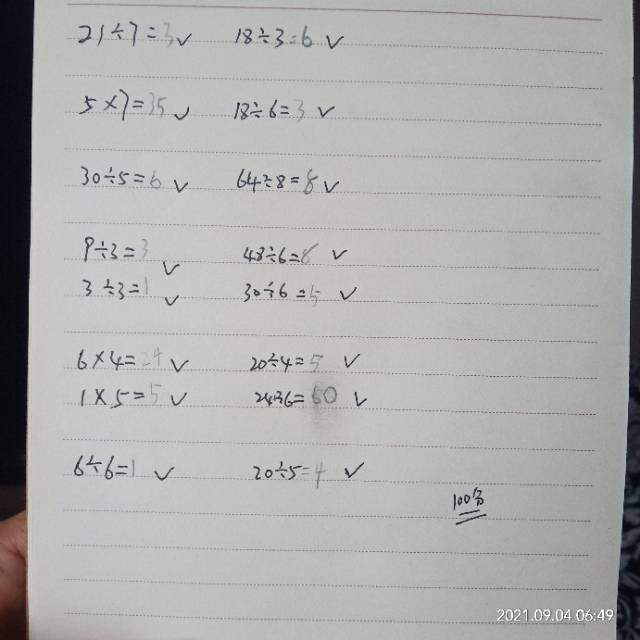 21÷7=3✓ 18÷3=6✓
5×7=35✓ 18÷6=3✓
30÷5=6✓ 64÷8=8✓
9÷3=3✓ 48÷6=8✓
3÷3=1✓ 30÷6=5✓
6×4=24✓ 20÷4=5✓
1×5=5✓ =60✓
6÷6=1✓ 20÷5=4✓
100分
2021.09.04 06:49